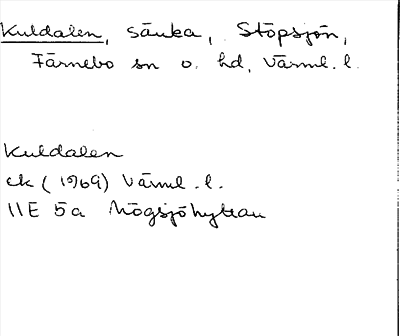 Kuldalen, sänka, Stöpsjön,
Färnebo sn o. hd, Värml. l.
Kuldalen
ek (1969) Värml. l.
11E 5a Högsjöhyttan